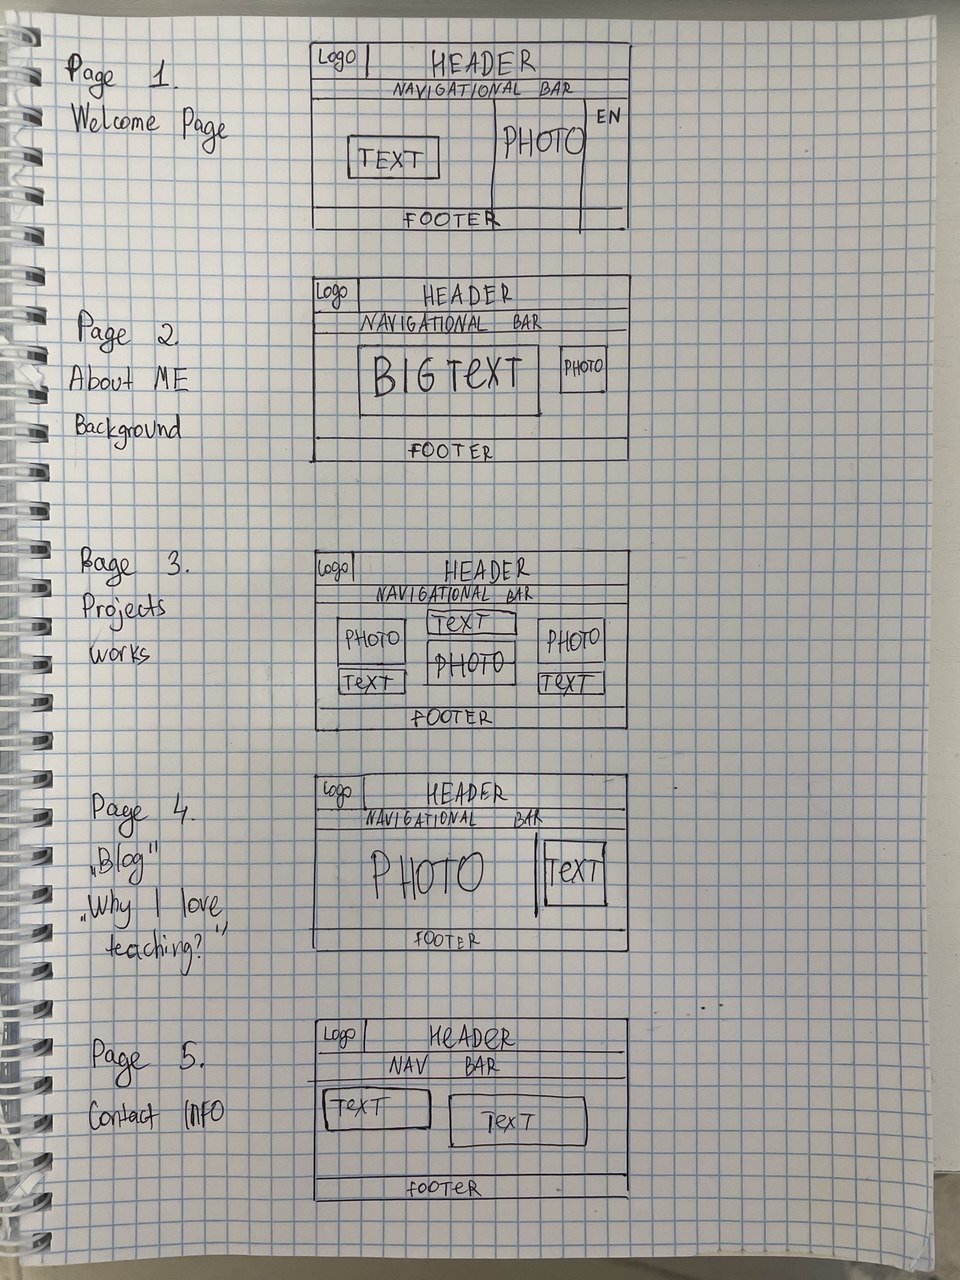 Page 1.
Welcome Page
Logo HEADER
NAVIGATIONAL BAR
TEXT PHOTO EN
FOOTER
Page 2.
About ME
Background
Logo HEADER
NAVIGATIONAL BAR
BIG TEXT PHOTO
FOOTER
Bage 3.
Projects
works
Logo HEADER
NAVIGATIONAL BAR
PHOTO TEXT PHOTO
TEXT PHOTO TEXT
FOOTER
Page 4.
„Blog"
„Why I love
teaching?"
Logo HEADER
NAVIGATIONAL BAR
PHOTO TEXT
FOOTER
Page 5.
Contact INFO
Logo HEADER
NAV BAR
TEXT TEXT
FOOTER